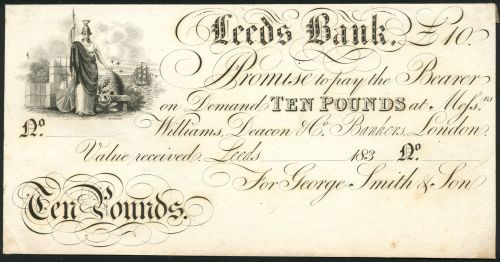 Leeds Bank. £10.
I Promise to pay the Bearer
on Demand TEN POUNDS at Mefs.rs
No. Williams, Deacon & Co. Bankers, London
Value received. Leeds 183 No.
For George Smith & Son
Ten Pounds.